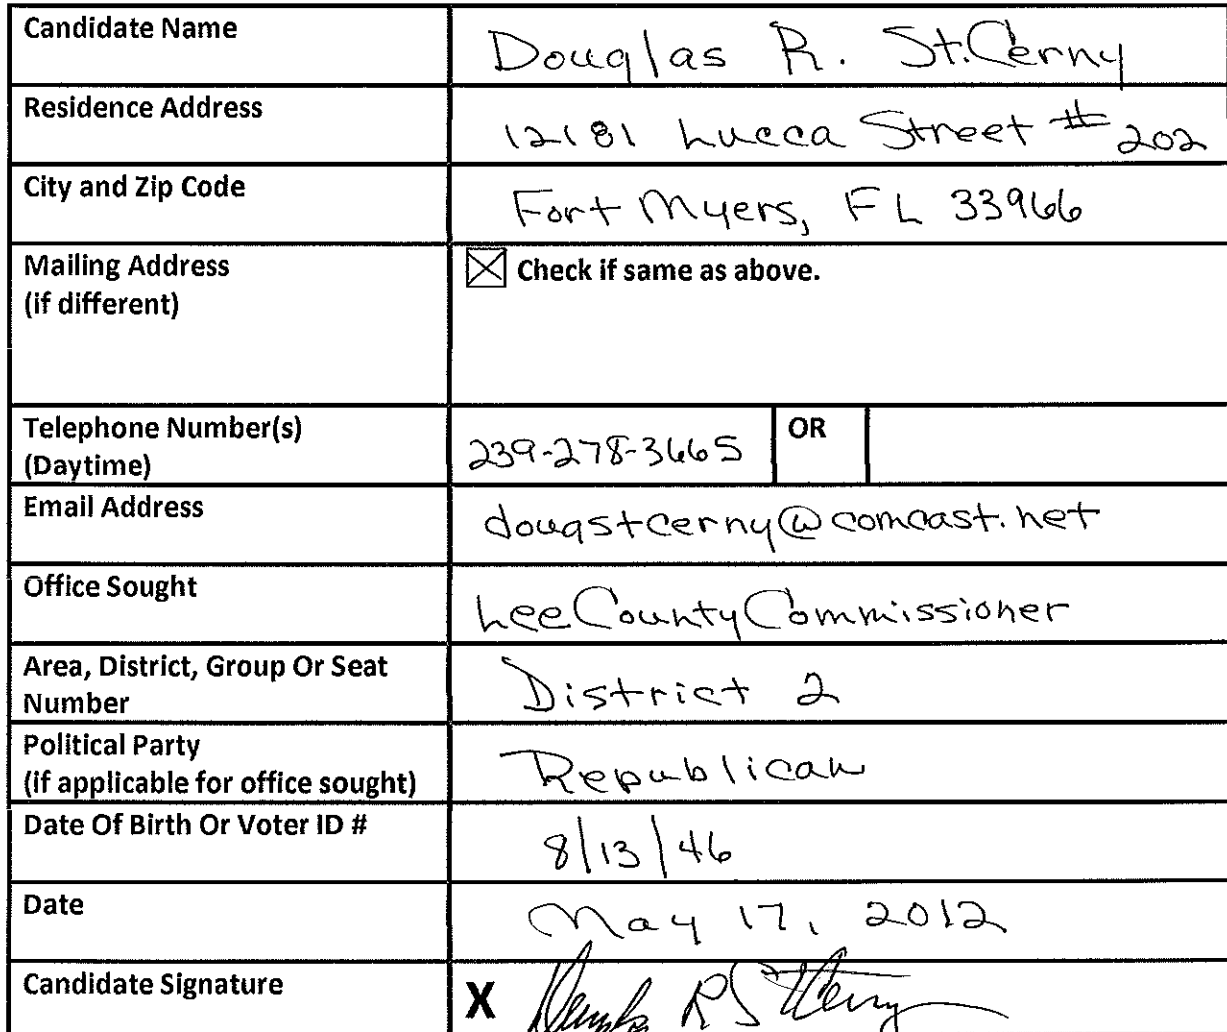 Candidate Name Douglas R. St.Cerny
Residence Address 12181 Lucca Street # 202
City and Zip Code Fort Myers, FL 33966
Mailing Address
(if different)
☒ Check if same as above.
Telephone Number(s)
(Daytime)
239-278-3665 OR
Email Address dougstcerny@comcast.net
Office Sought Lee County Commissioner
Area, District, Group Or Seat
Number
District 2
Political Party
(if applicable for office sought)
Republican
Date Of Birth Or Voter ID # 8/13/46
Date May 17, 2012
Candidate Signature X Douglas R St Cerny